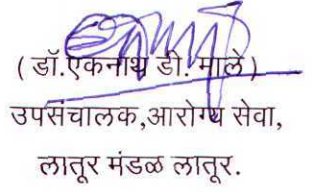 ( डॉ.एकनाथ डी. माले )
उपसंचालक,आरोग्य सेवा,
लातूर मंडळ लातूर.